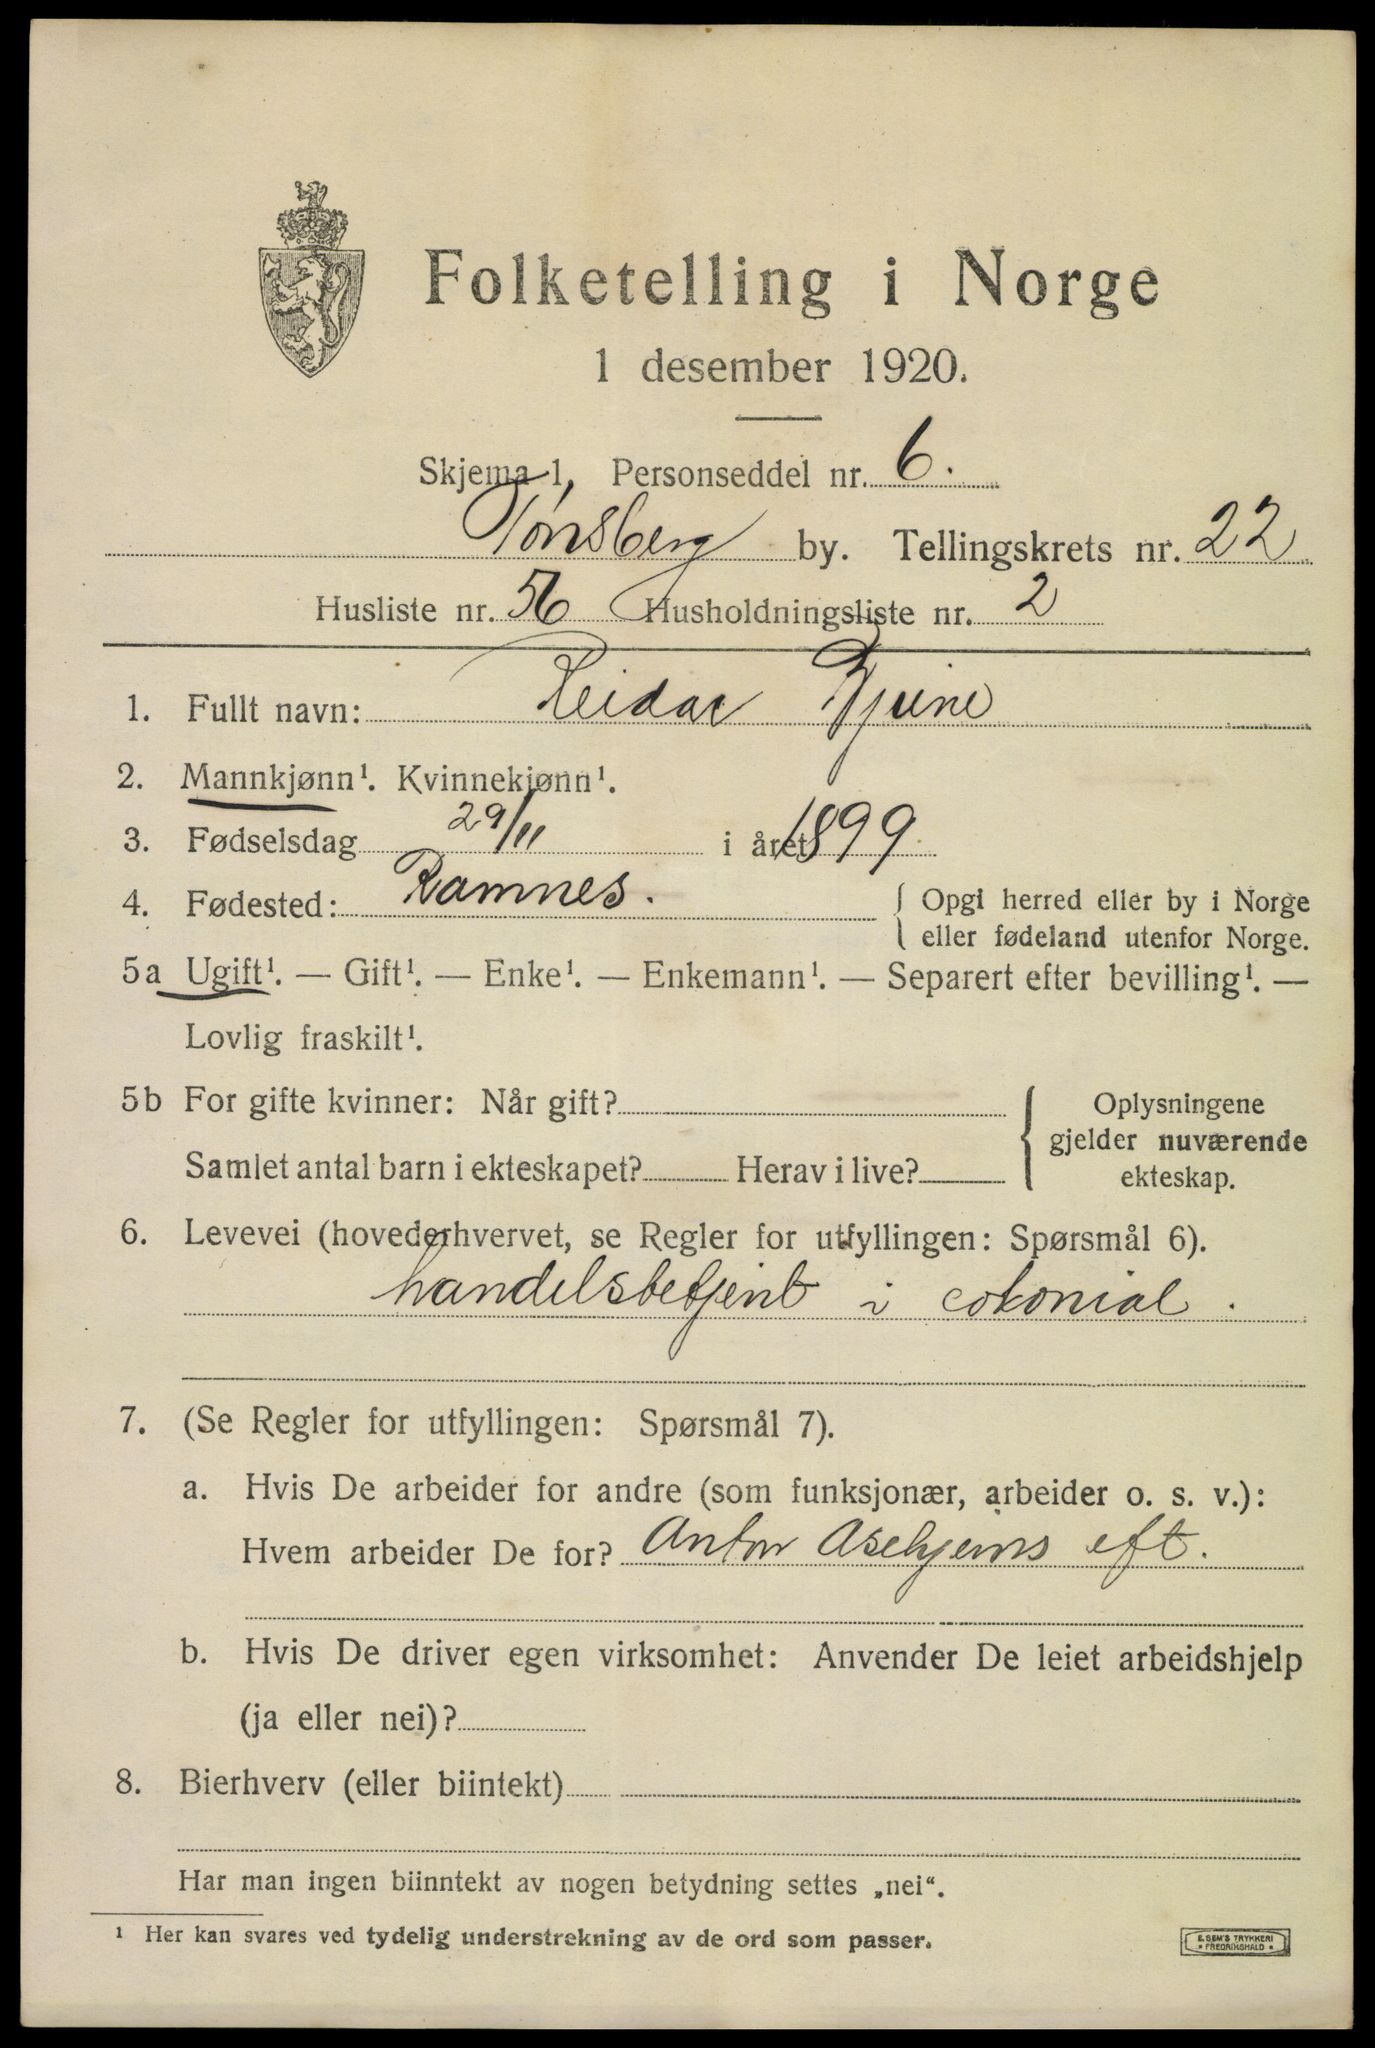 Folketelling i Norge
1 desember 1920.
Skjema 1, Personseddel nr. 6.
Tønsberg by. Tellingskrets nr. 22
Husliste nr. 56 Husholdningsliste nr. 2
1. Fullt navn: Reidar
2. Mannkjønn¹. Kvinnekjønn¹.
3. Fødselsdag 29/11 i året 1899
4. Fødested: Ramnes. { Opgi herred eller by i Norge
eller fødeland utenfor Norge.
5a Ugift¹. — Gift¹. — Enke¹. — Enkemann¹. — Separert efter bevilling¹. —
Lovlig fraskilt¹.
5b For gifte kvinner: Når gift? { Oplysningene
gjelder nuværende
Samlet antal barn i ekteskapet? Herav i live? ekteskap.
6. Levevei (hovederhvervet, se Regler for utfyllingen: Spørsmål 6).
handelsbetjent i colonial.
7. (Se Regler for utfyllingen: Spørsmål 7).
a. Hvis De arbeider for andre (som funksjonær, arbeider o. s. v.):
Hvem arbeider De for? Anton Asehjems eft.
b. Hvis De driver egen virksomhet: Anvender De leiet arbeidshjelp
(ja eller nei)?
8. Bierhverv (eller biintekt)
Har man ingen biinntekt av nogen betydning settes „nei".
¹ Her kan svares ved tydelig understrekning av de ord som passer.
E. SEM'S TRYKKERI
* FREDRIKSHALD *